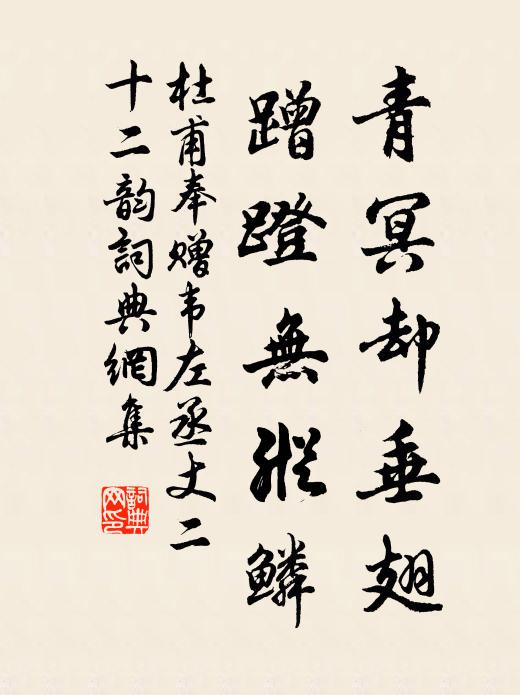 青冥却垂翅
蹭蹬無縱鱗
杜甫奉赠韦左丞丈二
十二韵詞典網集
詞典网印